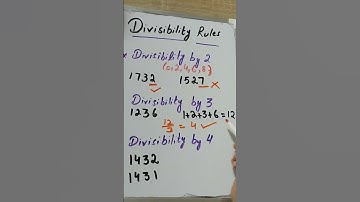 Divisibility Rules
* Divisibility by 2
{0,2,4,6,8}
1732 ✓ 1527 ×
Divisibility by 3
1236 1+2+3+6=12
12/3 = 4 ✓
Divisibility by 4
1432
1431